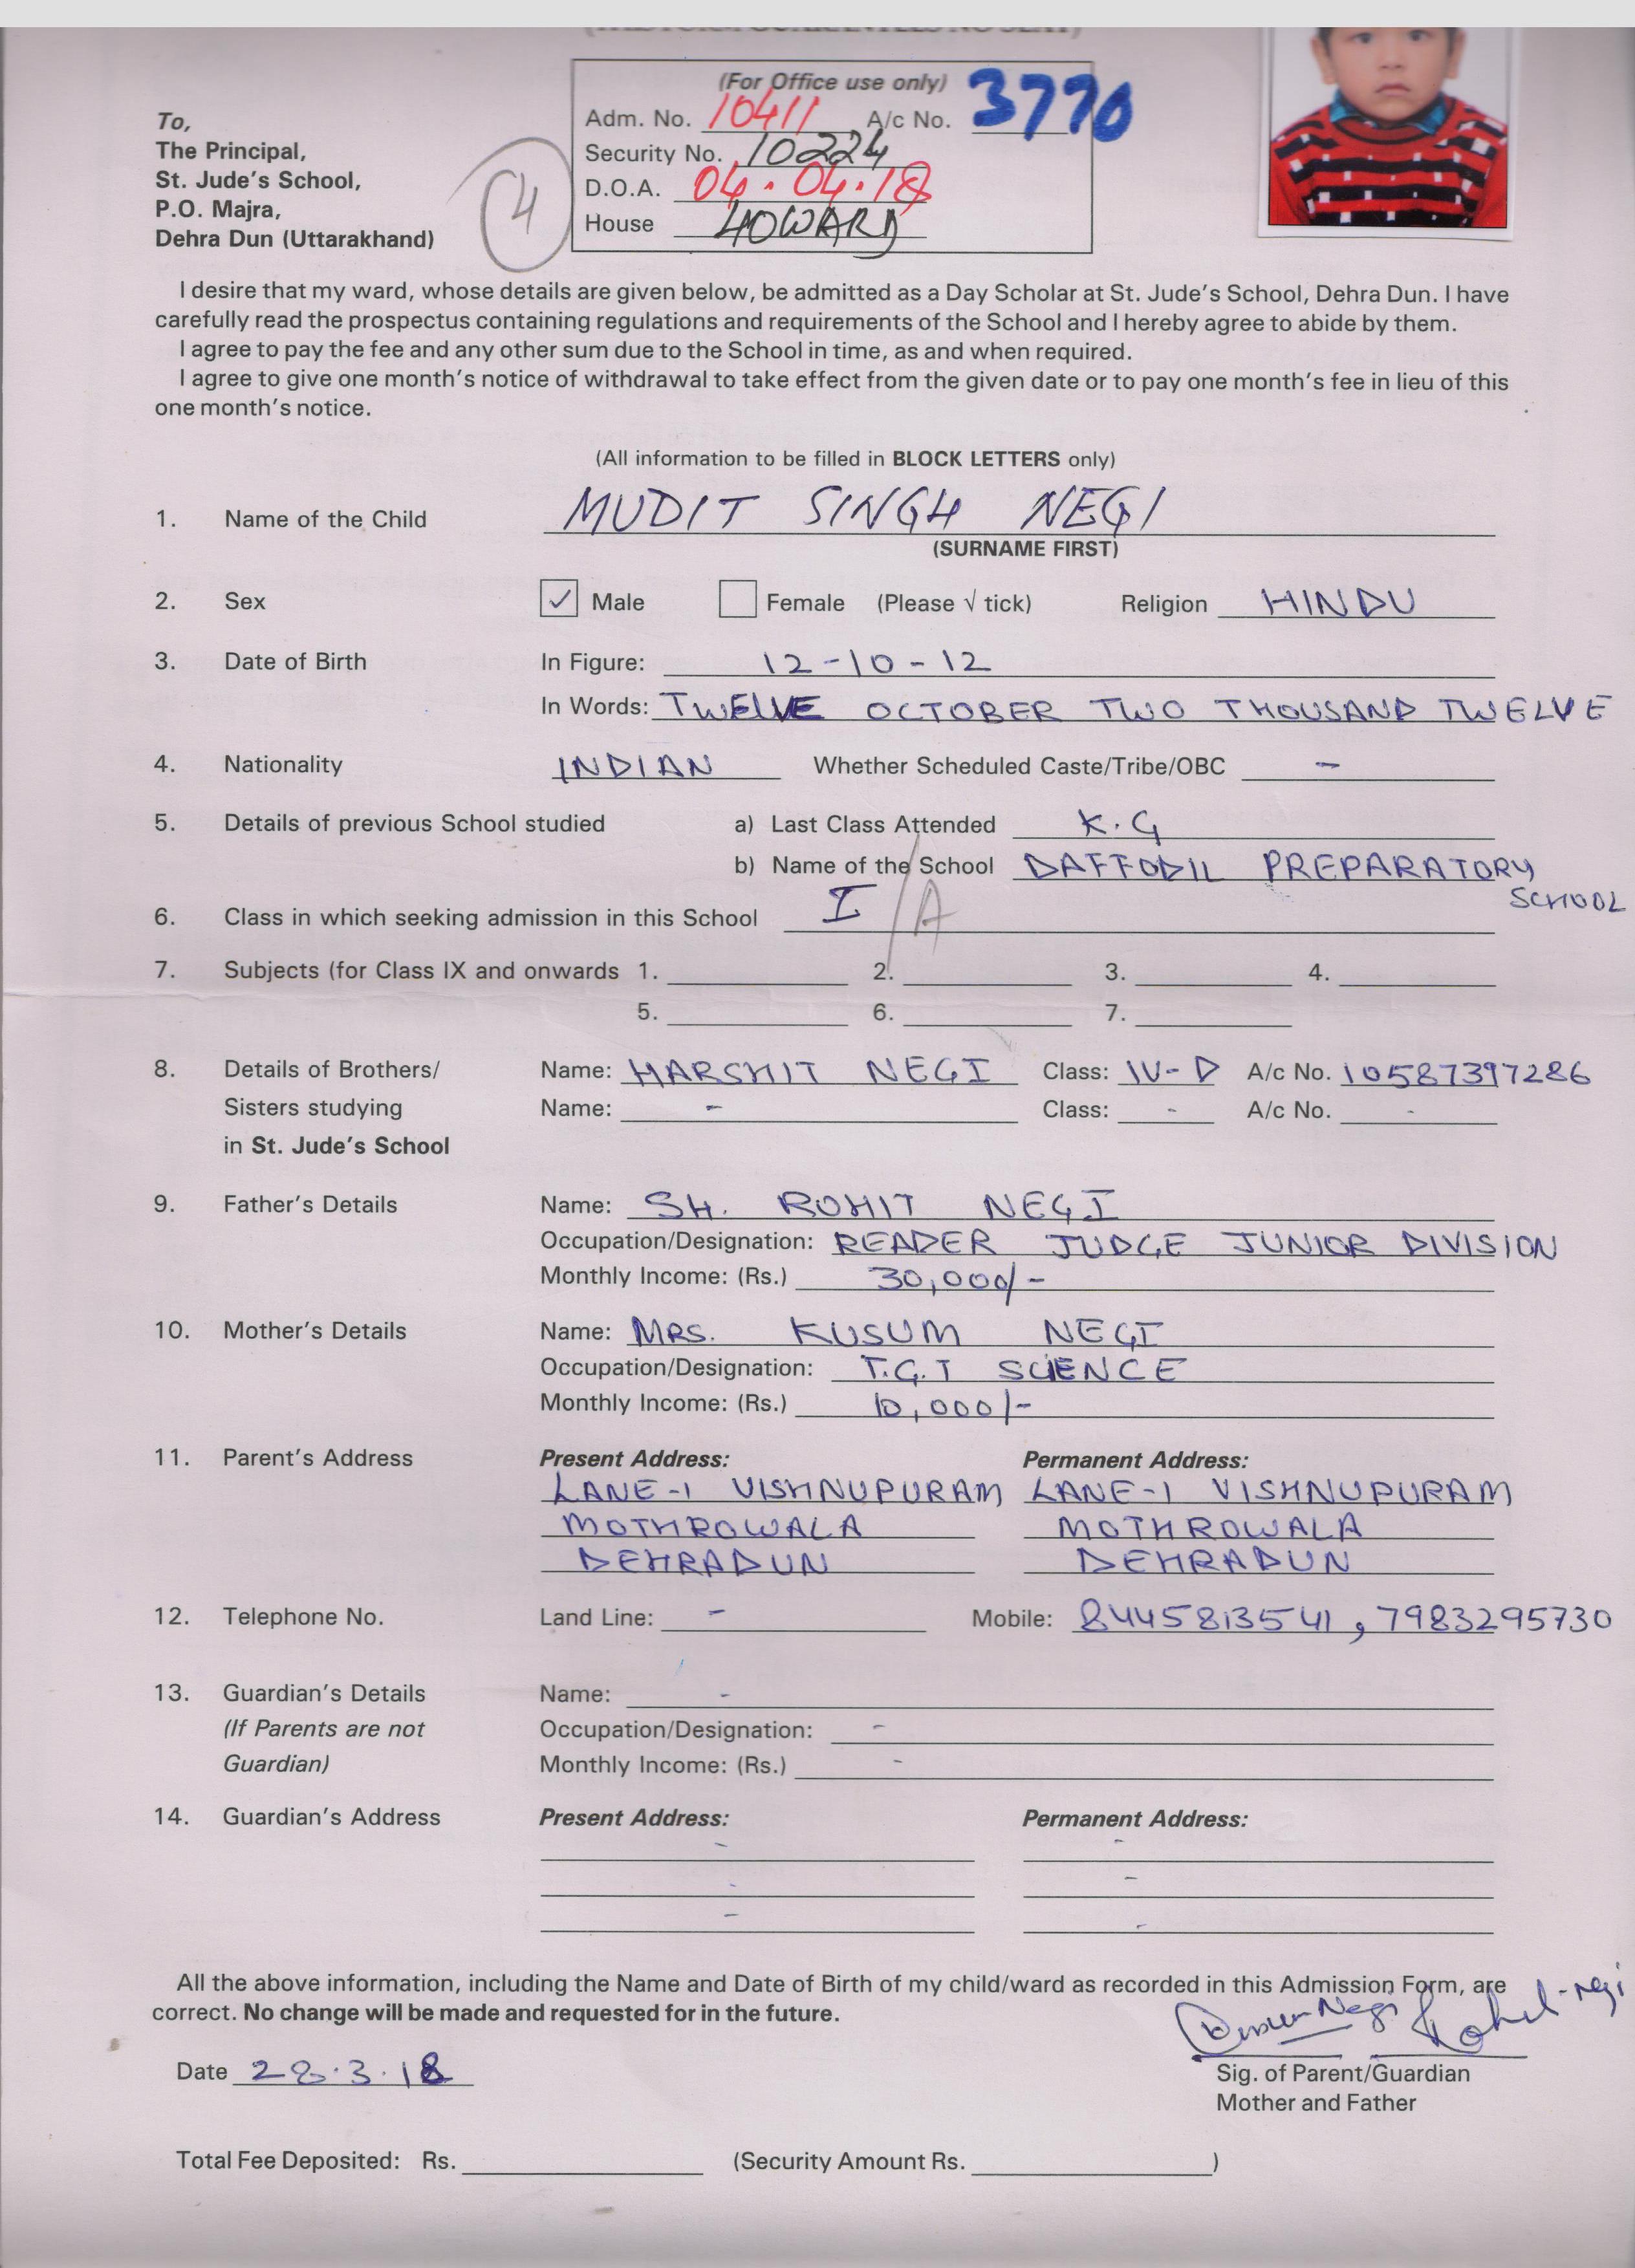 (For Office use only) 3770
Adm. No. 10411 A/c No.
Security No. 10224
D.O.A. 04.04.18
House HOWARD
To,
The Principal,
St. Jude's School,
P.O. Majra,
Dehra Dun (Uttarakhand)
I desire that my ward, whose details are given below, be admitted as a Day Scholar at St. Jude's School, Dehra Dun. I have
carefully read the prospectus containing regulations and requirements of the School and I hereby agree to abide by them.
I agree to pay the fee and any other sum due to the School in time, as and when required.
I agree to give one month's notice of withdrawal to take effect from the given date or to pay one month's fee in lieu of this
one month's notice.
(All information to be filled in BLOCK LETTERS only)
1. Name of the Child MUDIT SINGH NEGI
(SURNAME FIRST)
2. Sex ✓ Male Female (Please √ tick) Religion HINDU
3. Date of Birth In Figure: 12-10-12
In Words: TWELVE OCTOBER TWO THOUSAND TWELVE
4. Nationality INDIAN Whether Scheduled Caste/Tribe/OBC -
5. Details of previous School studied a) Last Class Attended K.G
b) Name of the School DAFFODIL PREPARATORY SCHOOL
6. Class in which seeking admission in this School I / A
7. Subjects (for Class IX and onwards 1. 2. 3. 4.
5. 6. 7.
8. Details of Brothers/ Name: HARSHIT NEGI Class: IV-D A/c No. 10587397286
Sisters studying Name: - Class: - A/c No. -
in St. Jude's School
9. Father's Details Name: SH. ROHIT NEGI
Occupation/Designation: READER JUDGE JUNIOR DIVISION
Monthly Income: (Rs.) 30,000/-
10. Mother's Details Name: MRS. KUSUM NEGI
Occupation/Designation: T.G.T SCIENCE
Monthly Income: (Rs.) 10,000/-
11. Parent's Address Present Address: Permanent Address:
LANE-1 VISHNUPURAM LANE-1 VISHNUPURAM
MOTHROWALA MOTHROWALA
DEHRADUN DEHRADUN
12. Telephone No. Land Line: - Mobile: 8445813541, 7983295730
13. Guardian's Details Name: -
(If Parents are not Occupation/Designation: -
Guardian) Monthly Income: (Rs.) -
14. Guardian's Address Present Address: Permanent Address:
All the above information, including the Name and Date of Birth of my child/ward as recorded in this Admission Form, are
correct. No change will be made and requested for in the future.
Date 28.3.18 Sig. of Parent/Guardian
Mother and Father
Total Fee Deposited: Rs. (Security Amount Rs. )